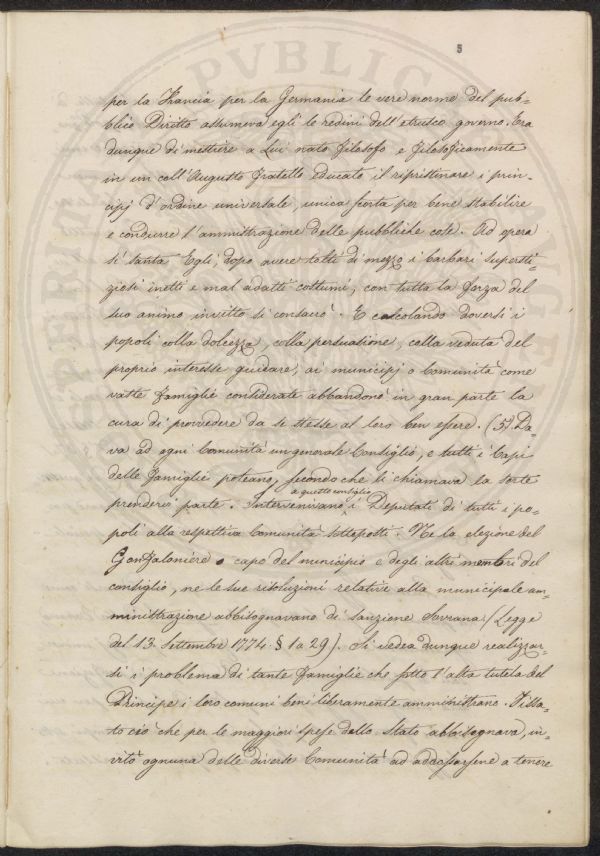 5
per la Francia per la Germania le vere norme del pub-
blico Diritto assumeva egli le redini dell'etrusco governo. Era
dunque di mestiere a Lui nato filosofo e filosoficamente
in un coll'Augusto Fratello educato il ripristinare i prin-
cipj d'ordine universale, unica scorta per bene stabilire
e condurre l'ammistrazione delle pubbliche cose. Ad opera
sì tanta Egli, dopo avere tolti di mezzo i barbari supersti-
ziosi inetti e mal adatti costumi, con tutta la forza del
suo animo invitto si consacrò. E calcolando doversi i
popoli colla dolcezza, colla persuasione, colla veduta del
proprio interesse guidare, ai municipj o Comunità come
vaste famiglie considerate abbandonò in gran parte la
cura di provvedere da se stesse al loro ben essere. (5) Da-
va ad ogni Comunità un generale Consiglio, e tutti i Capi
delle famiglie poteano, secondo che li chiamava la sorte
prendervi parte. Intervenivano a questo consiglio i Deputati di tutti i po-
poli alla respettiva Comunità sottoposti. Ne la elezione del
Gonfaloniere o capo del municipio e degli altri membri del
consiglio, ne le sue risoluzioni relative alla municipale am-
ministrazione abbisognavano di sanzione Sovrana (Legge
del 13. Settembre 1774. § 1 a 29). Si vedea dunque realizzar-
si i problema di tante famiglie che sotto l'alta tutela del
Principe i loro comuni beni liberamente amministrano. Fissa-
to ciò che per le maggiori spese dello Stato abbisognava, in-
vitò ognuna delle diverse Comunità ad addossarsene a tenore